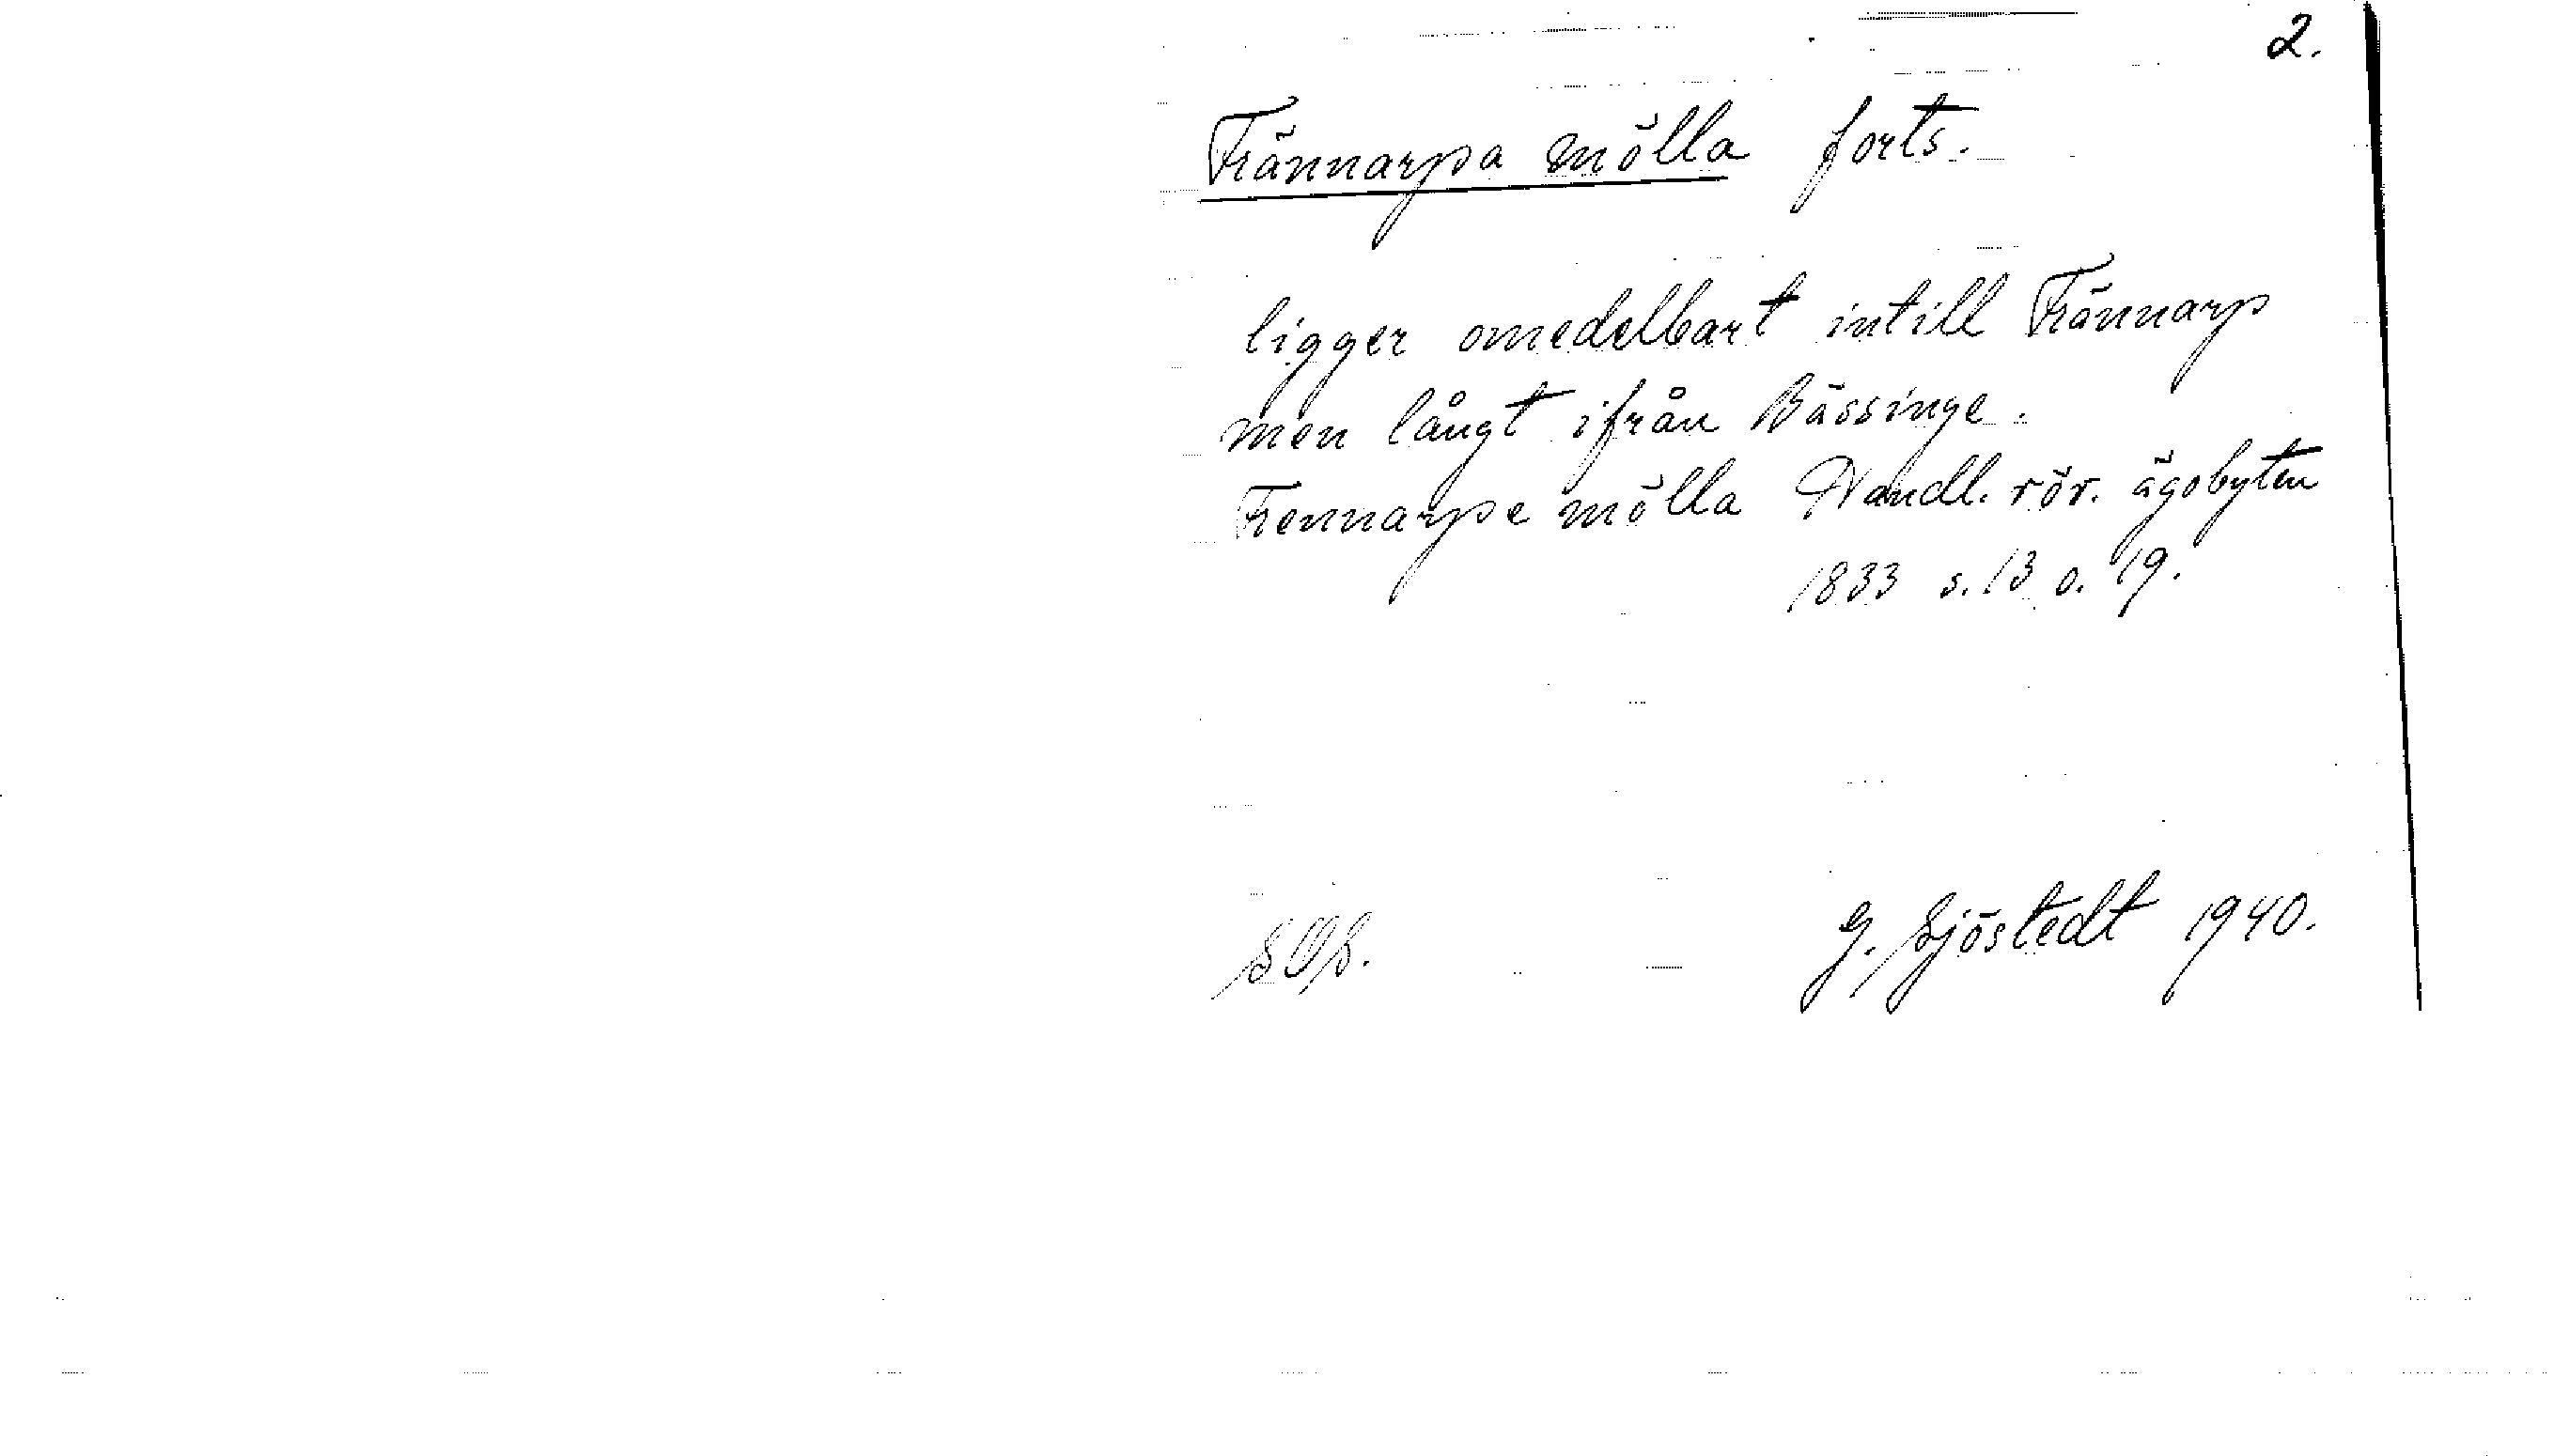 2.
Frännarpa mölla forts.
ligger omedelbart intill Frännarp
men långt ifrån Bässinge.
Frennarpe mölla Handl. rör. ägobyten
1833 s. 13 o. 19.
SOS. G. Sjöstedt 1940.